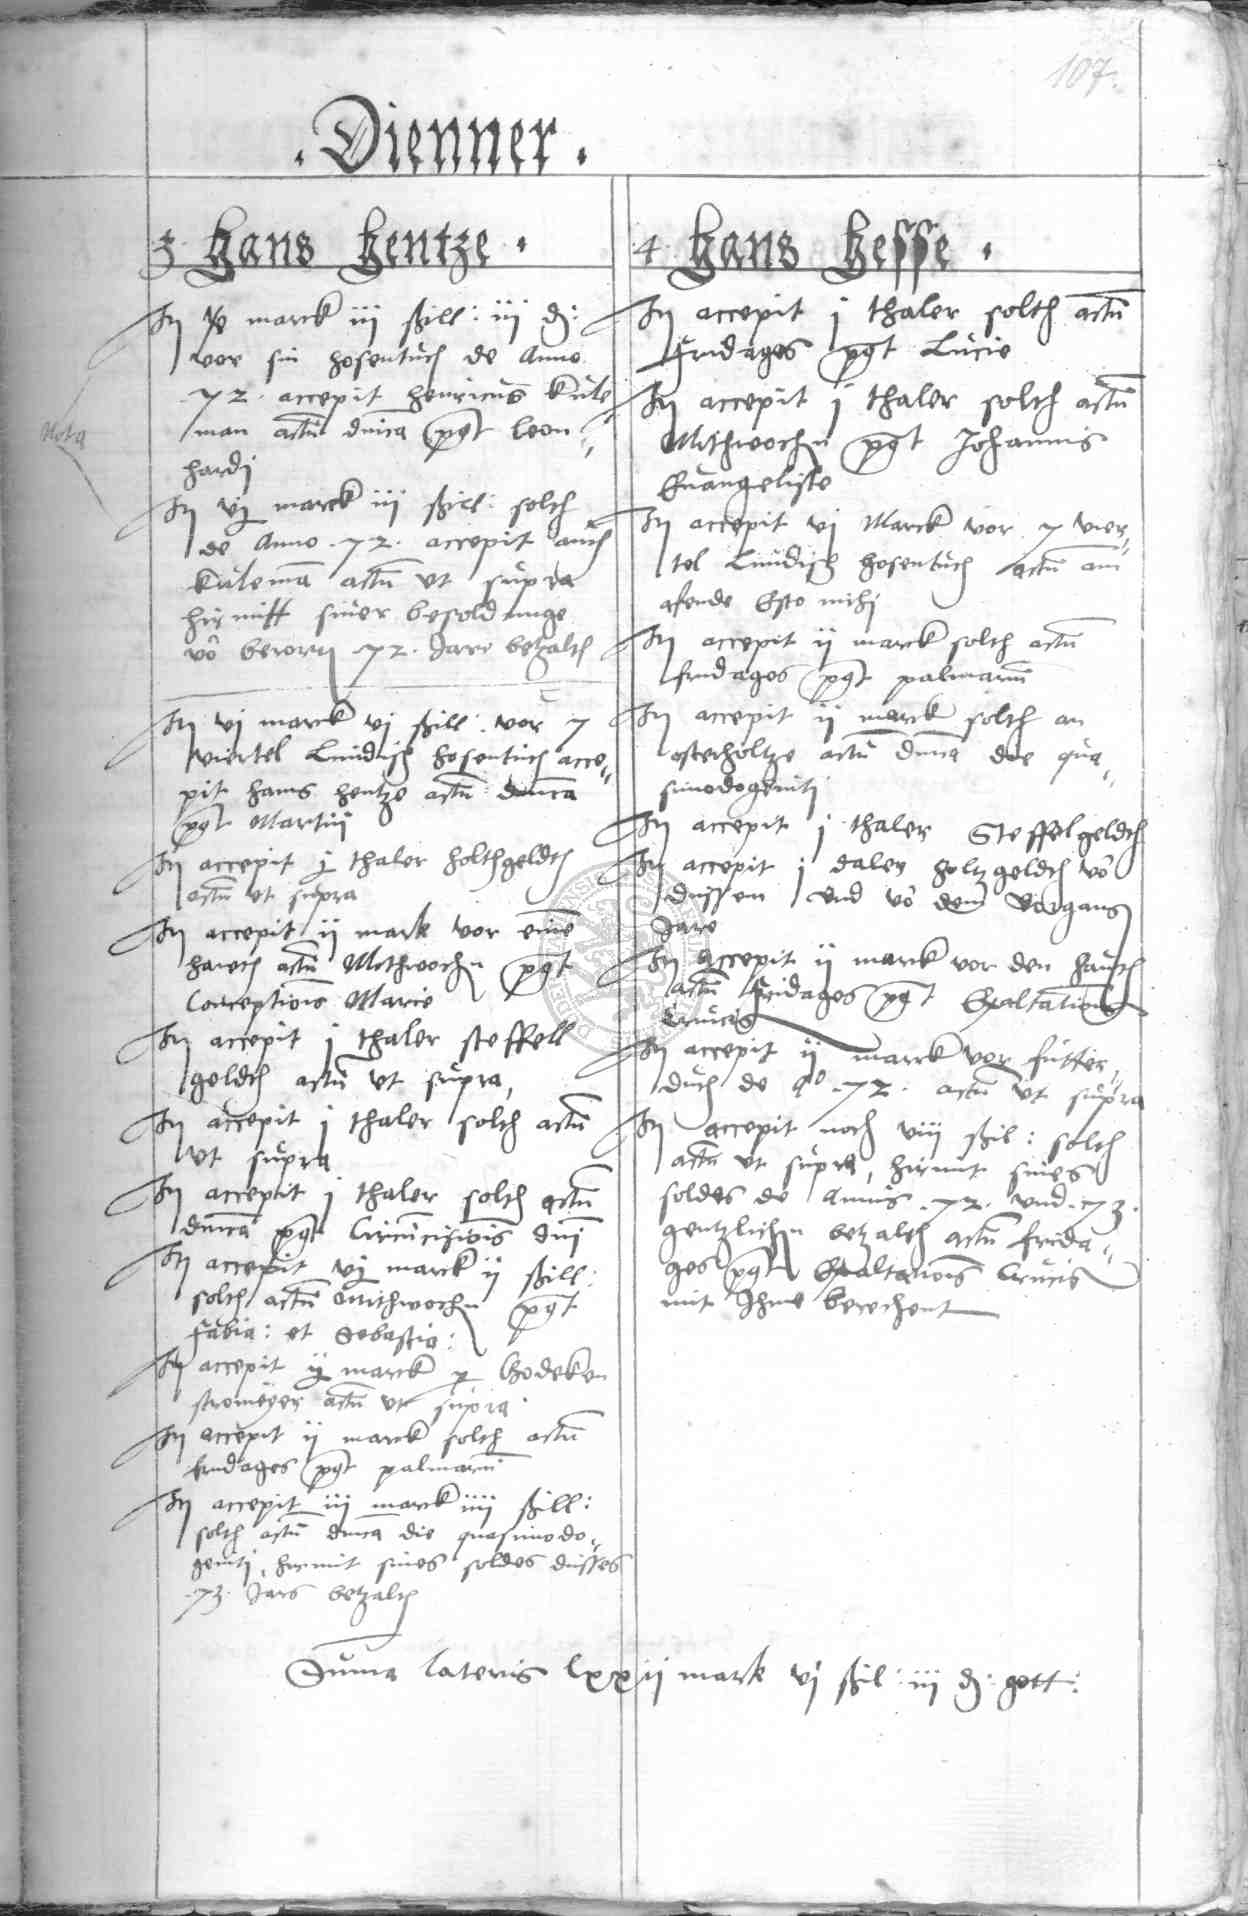 107.
. Dienner .
3 Hans Hentze .
It marck iij ßill: iij d:
vor sin hosentuch de Anno
.72. accepit henricus Kule
man actũ dnica pgt leon=
hardi
Nota
It vj marck iij ßill: solth
de Anno .72. accepit auch
Kulemã actũ vt supra
hir mitt siner besoldunge
vo berortt .72. Jare betzalth
It vj marck vj ßill: vor 7
viertel Lundisch hosentuch acce=
pit hans hentze actũ dnica
pgt Martini
It accepit j thaler holthgeldth
actũ vt supra
It accepit ij mark vor eine
hauth actũ Mithwochn pgt
Conceptionis Marie
It accepit j thaler steffell
geldth actũ vt supra,
It accepit j thaler solth actũ
vt supra
It accepit j thaler solth actũ
dnica pgt Circucisionis dni
It accepit vj marck ij ßill:
solth actũ Mithwochn pgt
Fabia: et Sebastia:
It accepit ij marck p Godeken
stromeyer actũ vt supra
It accepit ij marck solth actũ
fridages pgt palmarũ
It accepit iij marck iiij ßill:
solth actũ dnica die quasimodo=
geniti, hirmit sines soldes dusses
.73. Jars betzalth
4 Hans Hesse .
It accepit j thaler solth actũ
fridages pgt Lucie
It accepit j thaler solth actũ
Mithwochn pgt Johannis
Euangeliste
It accepit vj Marck vor 7 vier=
tel Lundisch hosentuch actũ am
afende Esto mihi
It accepit ij marck solth actũ
fridages pgt palmarũ
It accepit ij marck solth an
osterholtze actũ dnica die qua=
simodogeniti
It accepit j thaler Steffelgeldth
It accepit j daler holtzgeldth vo
dussen vnd vo dem Vorgang
Jare
It accepit ij marck vor den hauth
actũ fridages pgt Exaltationis
Crucis
It accepit ij marck vor futter=
duch de Ao .72. actũ vt supra
It accepit noch viij ßil: solth
actũ vt supra, hirmit sines
soldes de Annis .72. vnd .73.
gentzlichn betzalth actũ frida=
ges pgt Exaltationis Crucis
mit Ihme berechent
Suma lateris lxxij mark vj ßil: iij d: gott: